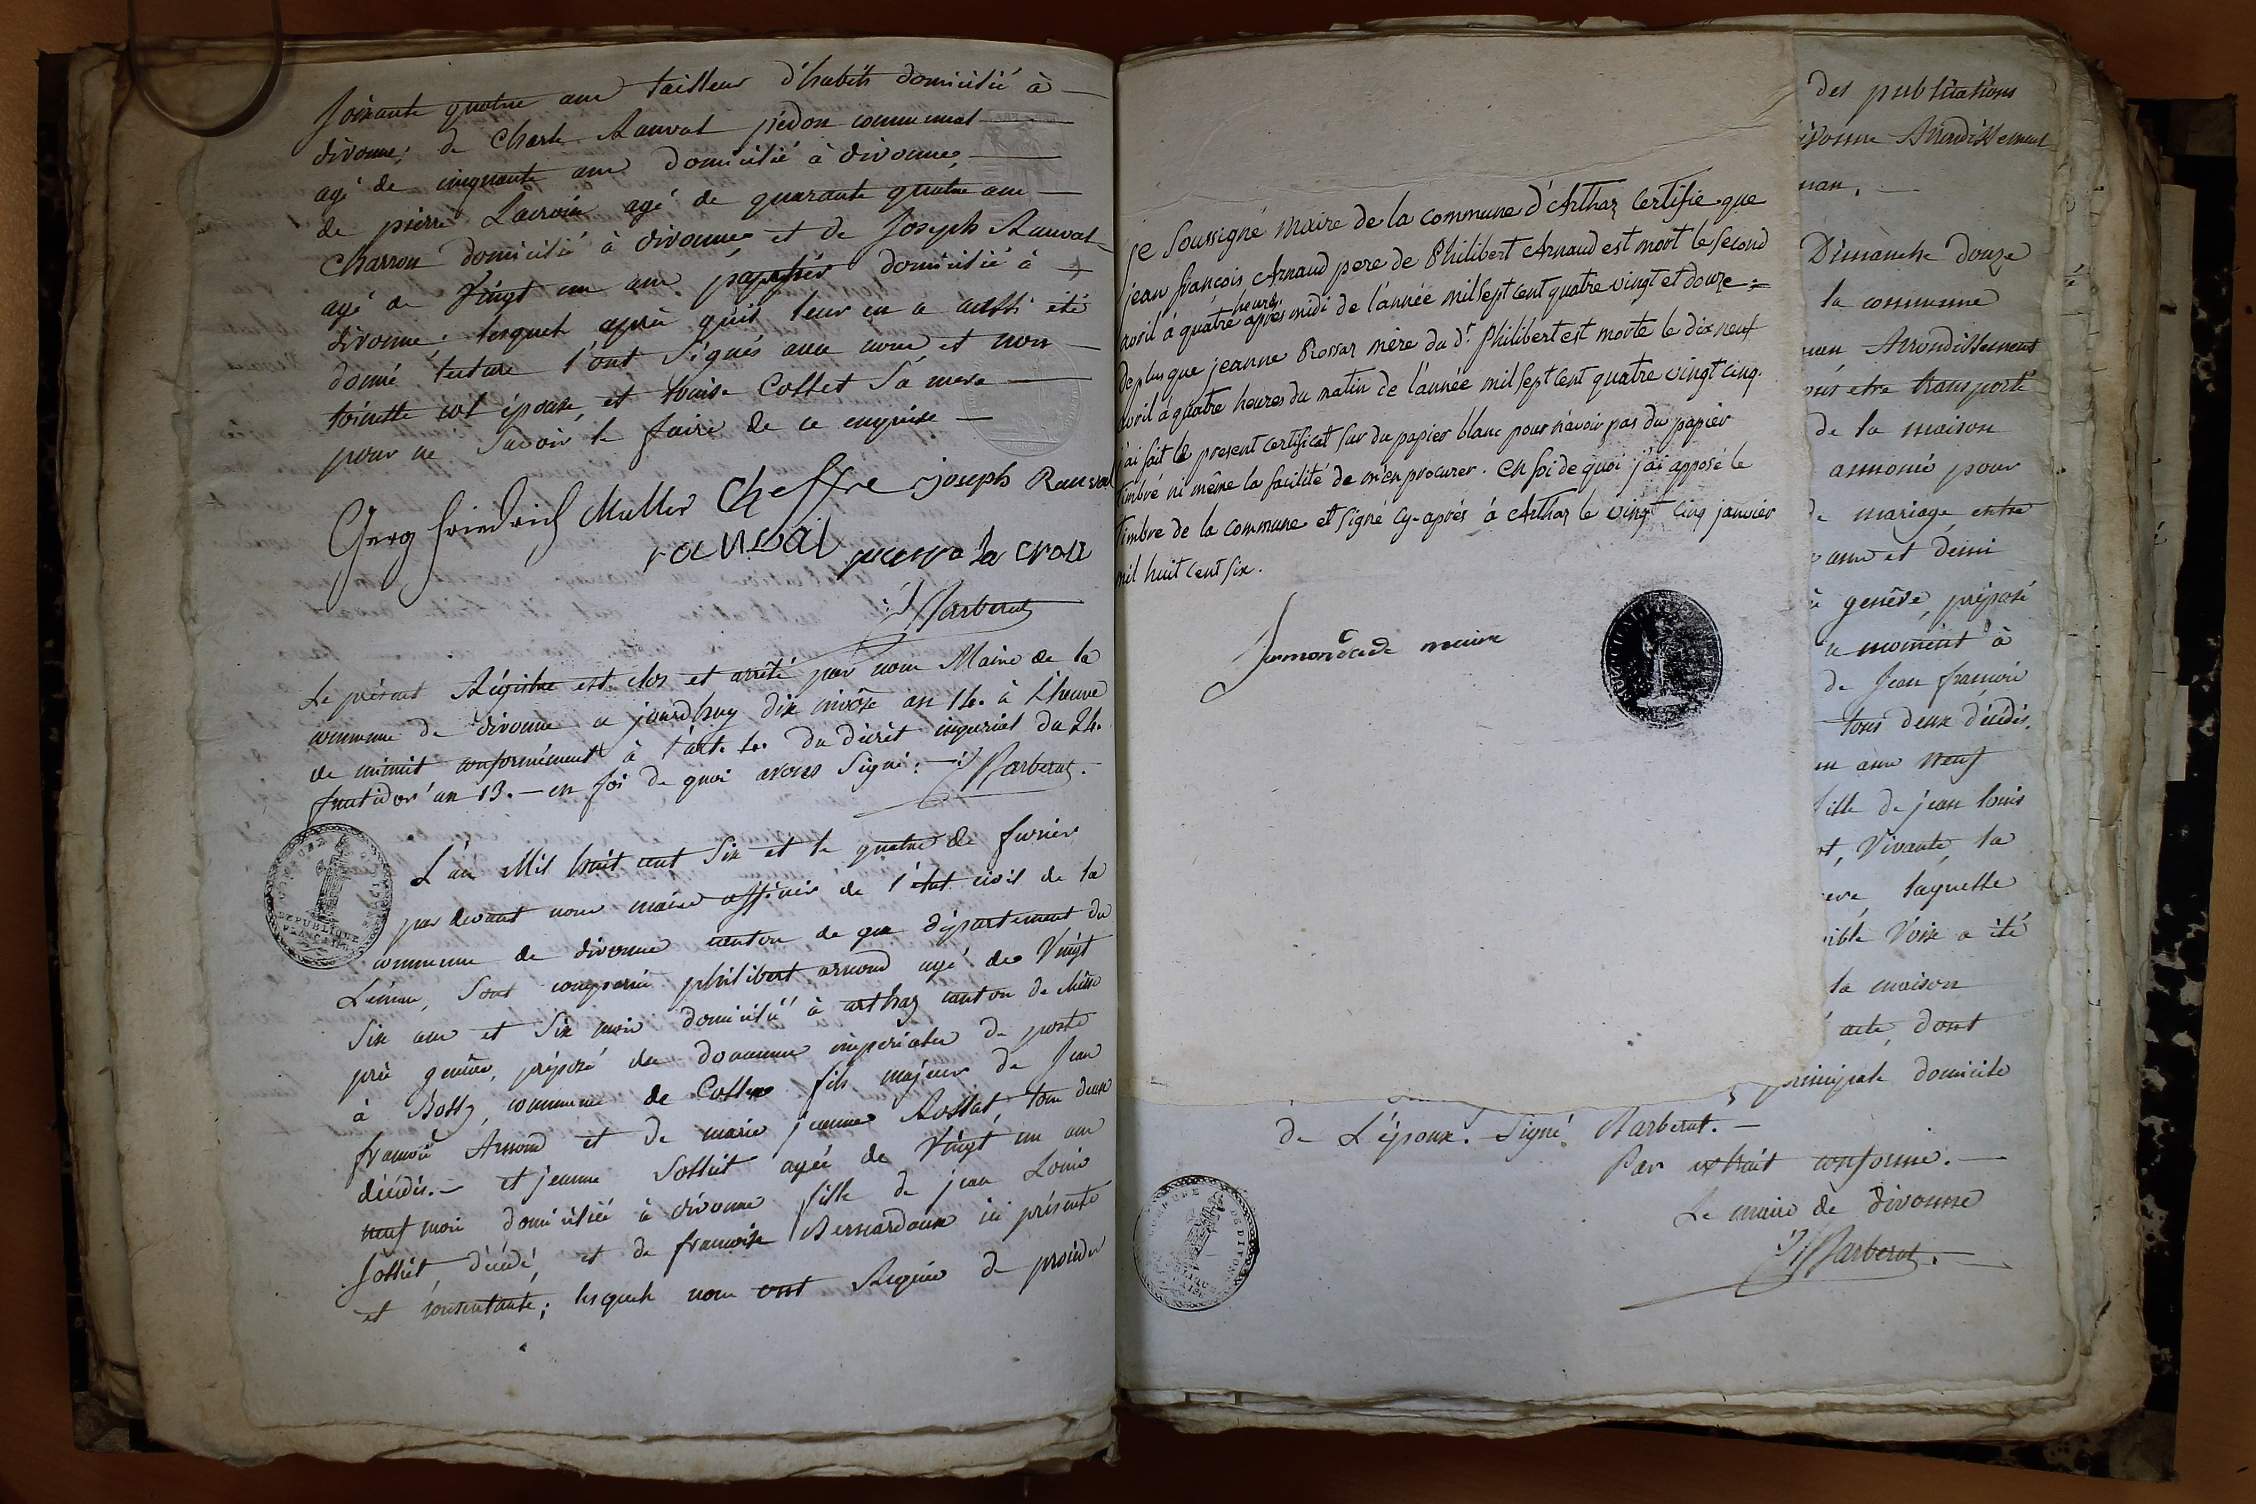 soixante quatre ans tailleur d'habits domicilié à
divonne; de Charle Rauval piedon communal
agé de cinquante ans domicilié à divonne
de pierre Lacroix agé de quarante quatre ans
Charron domicilié à divonne et de Joseph Rauval
agé de vingt un ans papetier domicilié à
divonne; lesquels après qu'il leur en a aussi été
donné lecture l'ont signés avec nous et non
toinette col épouse, et louise Collet sa mere
pour ne savoir le faire de ce enquise
Gerg friedrich Muller Cheffre joseph Rauval
rauval pierre la croix
Barberat
Le présent Régistre est clos et arrêté par nous Maire de la
commune de divonne ce jourd'huy dix nivôse an 14. à l'heure
de minuit conformément à l'art. 4. du décrèt impérial du 24.
fructidor an 13. – en foi de quoi avons signé: Barberat.
COMMUNE DE DIVONNE
REPUBLIQUE FRANCAISE
L'an Mil huit cent six et le quatre de fevrier
par devant nous maire officier de l'état civil de la
commune de divonne canton de gex département du
Léman, sont comparus philibert arnoud agé de vingt
six ans et six mois domicilié à arthaz canton de
près genève, préposé des douannes imperiales du poste
à Bossy, commune de Collex fils majeur de Jean
françois Arnoud et de marie jeanne Rossat, tous deux
décédés. – et jeanne Sottiet agée de vingt un ans
neuf mois domiciliée à divonne fille de jean Louis
Sottiet décédé, et de françoise Bernardoux ici présente
et consentante; lesquels nous ont Requis de procéder
je soussigné Maire de la commune d'Arthaz Certifie que
jean françois Arnaud pere de Philibert Arnaud est mort le second
avril à quatre heures après midi de l'année mil sept cent quatre vingt et douze
deplus que jeanne Rossaz mère du dt. Philibert est morte le dix neuf
avril à quatre heures du matin de l'année mil sept cent quatre vingt cinq.
j'ai fait le present certificat sur du papier blanc pour n'avoir pas du papier
timbré ni même la facilité de m'en procurer. en foi de quoi j'ai apposé le
timbre de la commune et signé cy-après à Arthaz le vingt cinq janvier
mil huit cent six.
maire
des publications
divonne Arrondissement
man.
Dimanche douze
la commune
man Arrondissement
etre transporté
de la maison
annoncé pour
de mariage entre
ans et demi
genêve, préposé
moment à
de Jean françois
tous deux décédés.
un ans neuf
fille de jean louis
Vivante, la
laquelle
Voix a été
la maison
acte, dont
principale domicile
de L'époux. Signé Barberat. –
Par extrait conforme. –
Le maire de divonne
Barberat. –
COMMUNE DE DIVONNE